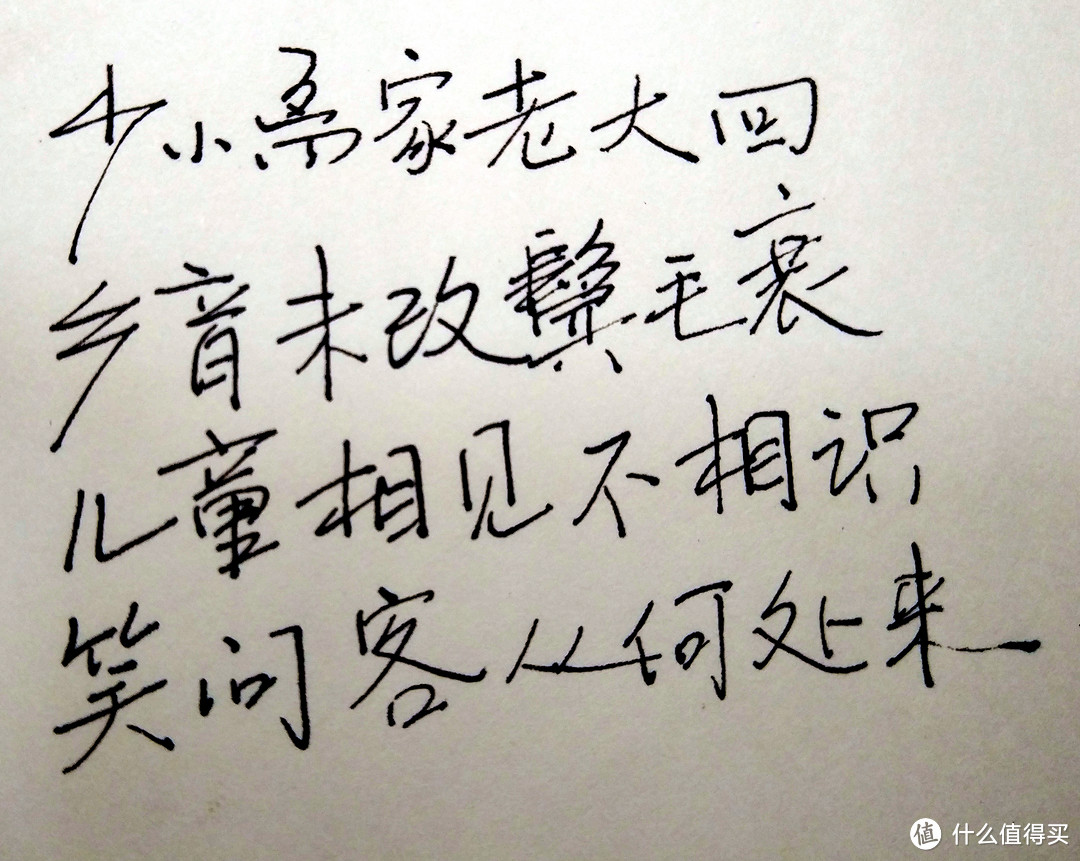 少小离家老大回
乡音未改鬓毛衰
儿童相见不相识
笑问客从何处来
值 什么值得买